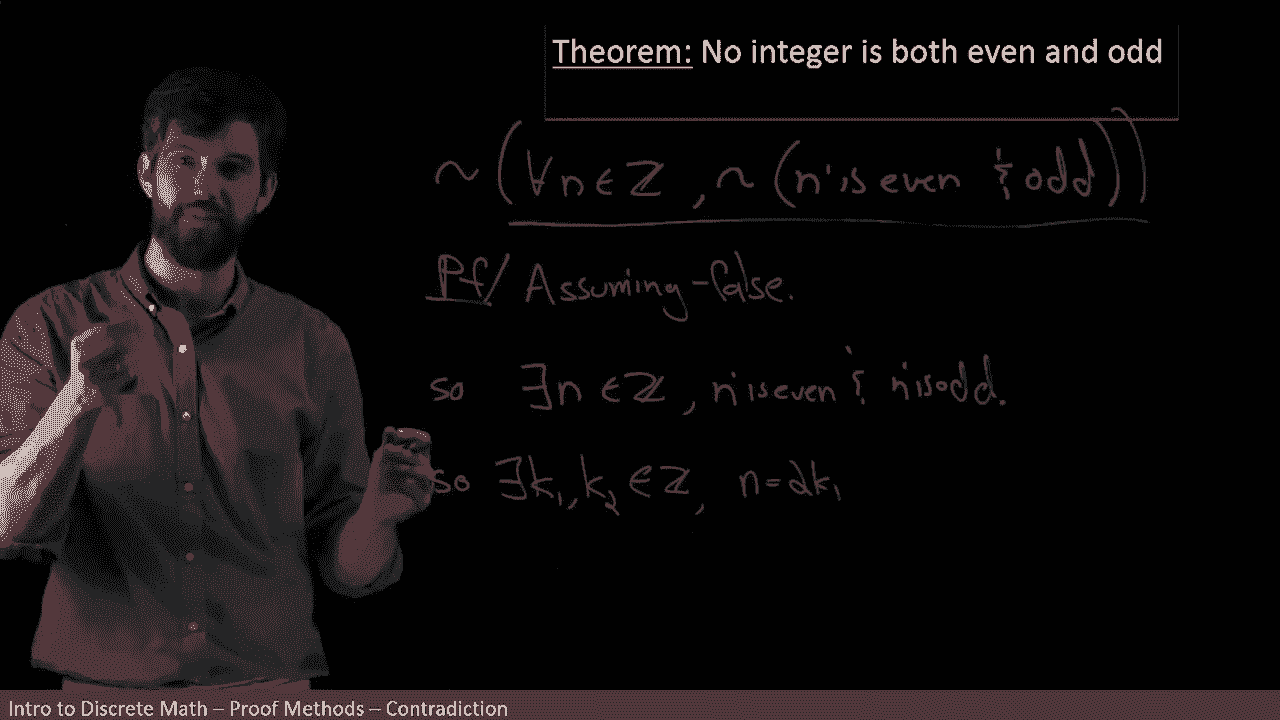 Theorem: No integer is both even and odd
~(∀n∈ℤ, ~(n is even & odd))
Pf/ Assuming-false.
so ∃n∈ℤ, n is even & n is odd.
so ∃k₁,k₂∈ℤ, n=2k₁
Intro to Discrete Math – Proof Methods – Contradiction